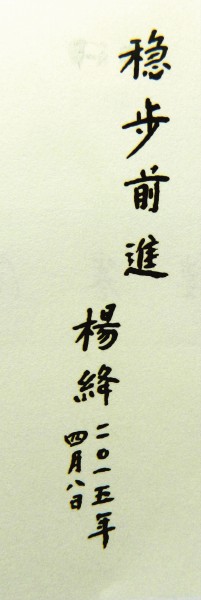 稳步前進
楊絳
二〇一五年
四月八日